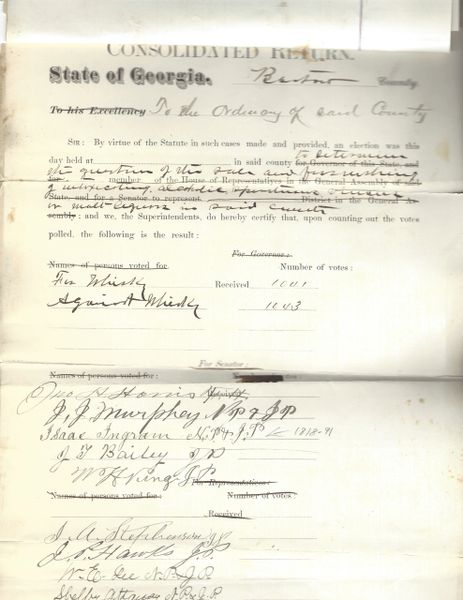 CONSOLIDATED RETURN.
State of Georgia. Bartow County
To his Excellency To the Ordinary of said County
SIR: By virtue of the Statute in such cases made and provided, an election was this
day held at in said county for Governor of this State, and to determine
the question of the sale and furnishing
for member of the House of Representatives in the General Assembly of said
of intoxicating, alcoholic spirituous
State, and for a Senator to represent District in the General As-
or malt liquors in said county
sembly: and we, the Superintendents, do hereby certify that, upon counting out the votes
polled, the following is the result:
For Governor:
Names of persons voted for Number of votes:
For Whisky Received 1041
Against Whisky 1043
For Senator:
Names of persons voted for:
Jno H Harris
J. J. Murphey N.P. & J.P
Isaac Ingram N.P. & J.P 1818-91
J T Bailey J P
W H King J.P. For Representatives:
Names of persons voted for: Number of votes:
Received
J. A. Stephenson J.P.
J. P. Hawks J.P.
W. E. Lee N.P. & J.P.
Shelby Attaway N.P. & J.P.